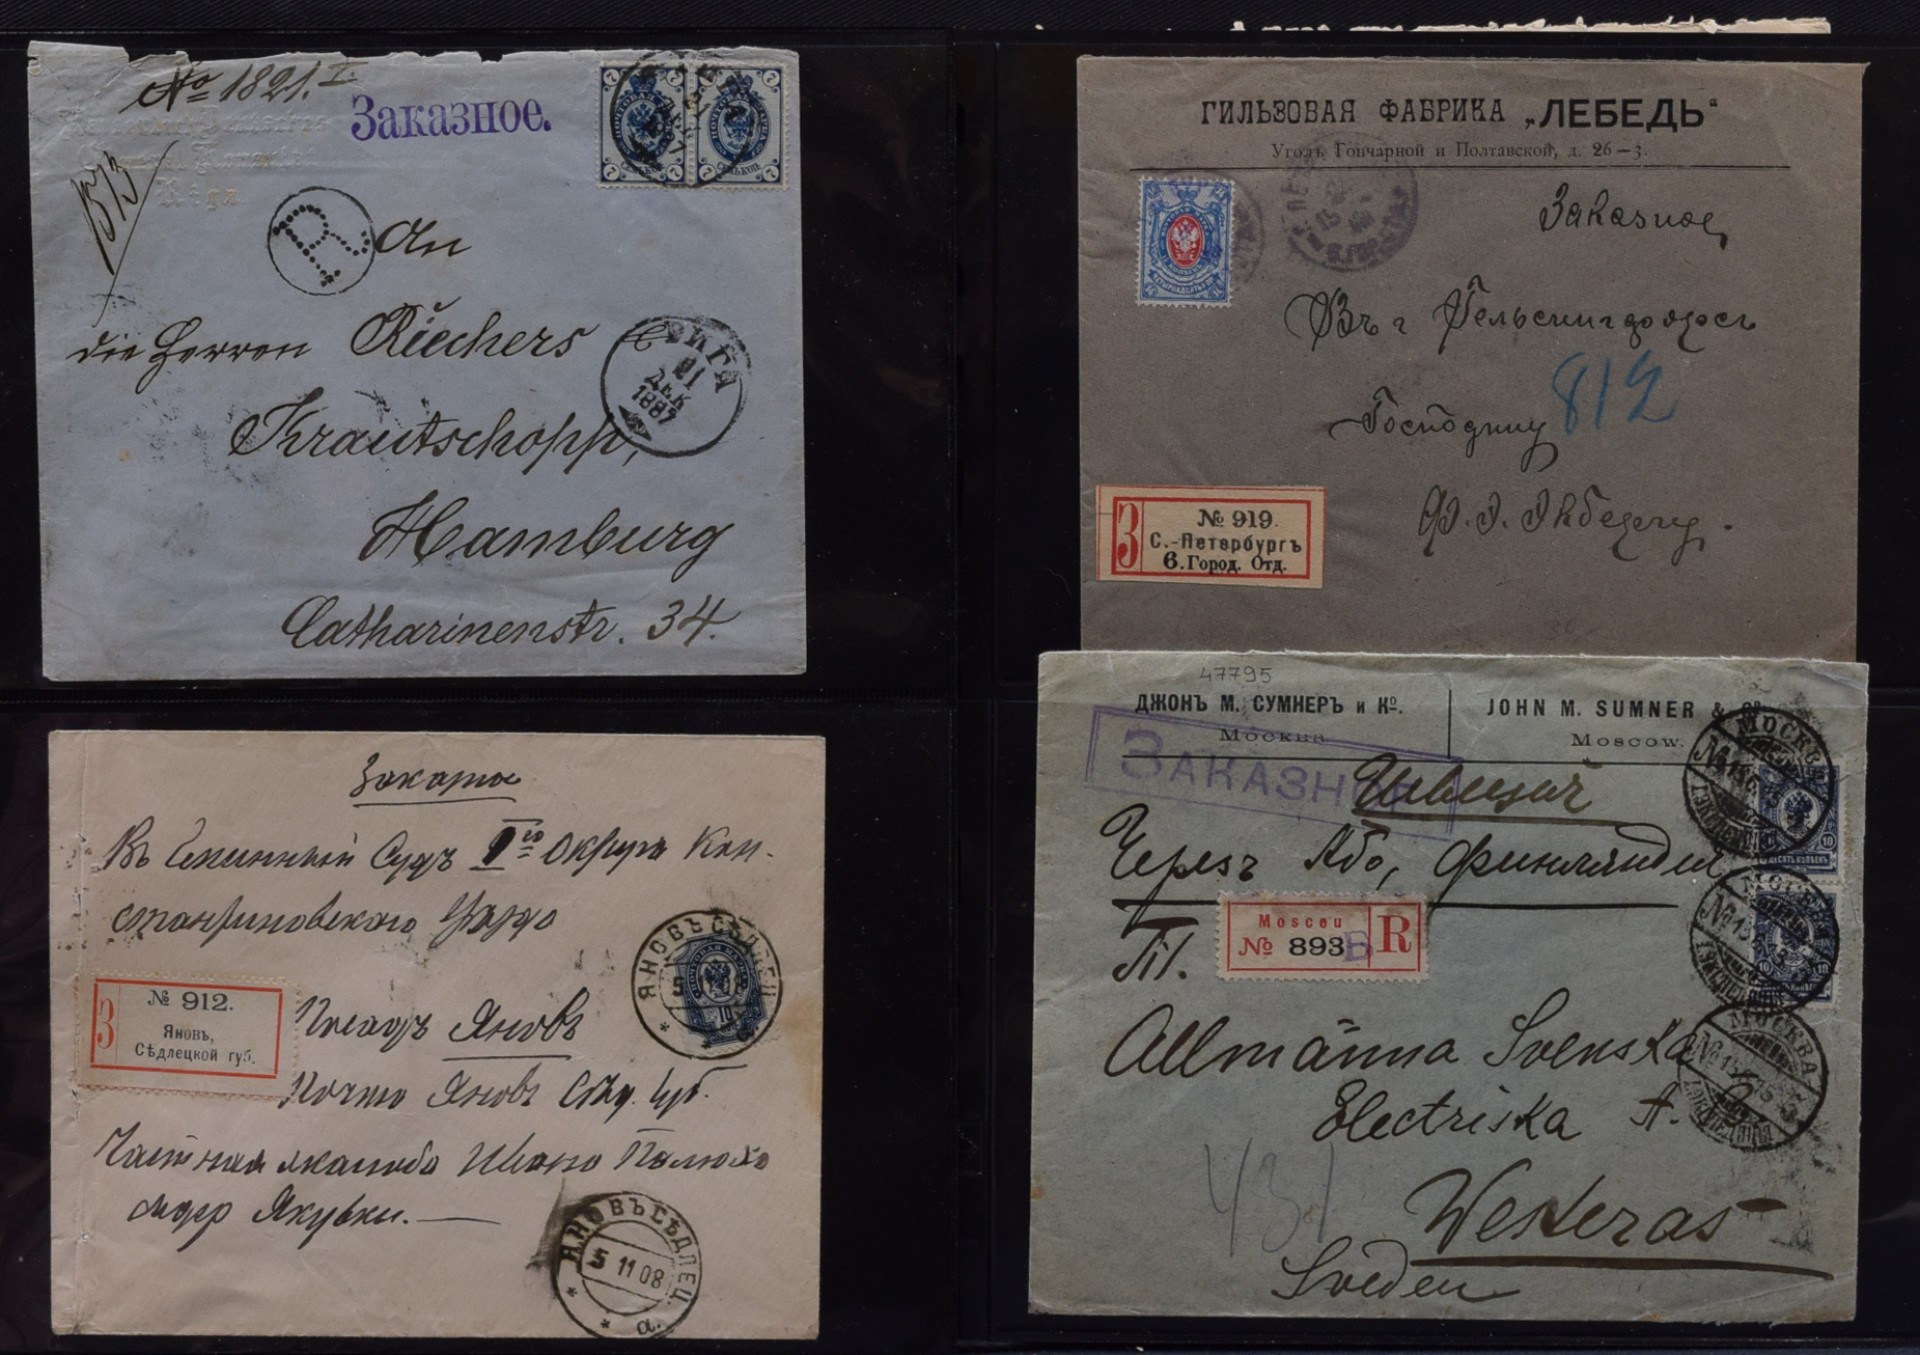 № 1821. I.
Заказное.
1573
R
An
die Herren Riechers
Krautschopp,
Hamburg
Catharinenstr. 34.
РИГА
21
ДЕК
1887
ГИЛЬЗОВАЯ ФАБРИКА „ЛЕБЕДЬ“
Уголъ Гончарной и Полтавской, д. 26—3.
Заказное
Въ г Гельсингфорсъ
812
Господину
З
№ 919.
С.-Петербургъ
6. Город. Отд.
Заказное
Въ Гминный Судъ I го Округа Кон-
стантиновскаго Уѣзда
З
№ 912.
Яновъ,
Сѣдлецкой губ.
Посадъ Яновъ
Почта Яновъ Сѣд. Губ.
Частная жалоба Ивана
Якубки.
ЯНОВЪ СѢДЛЕЦ.
5 11 08
ЯНОВЪ СѢДЛЕЦ.
5 11 08
а.
47795
ДЖОНЪ М. СУМНЕРЪ и Ко.
Москва.
JOHN M. SUMNER & Co.
Moscow.
ЗАКАЗНОЕ
Швеція
Черезъ Або, Финляндія
Moscou
№ 893 В
R
Allmänna Svenska
Electriska A.
Westeras
Sveden
431
МОСКВА